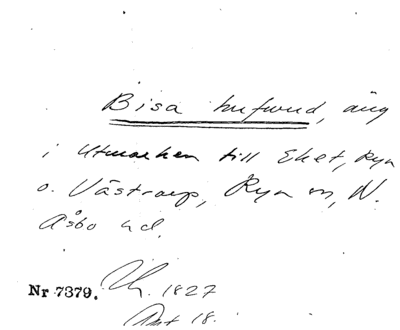 Bisa hufvud, äng
i utmarken till Eket, Rya
o. Västraryp, Rya sn, N.
Åsbo hd.
Nr 7379. Lh. 1827
Akt 18.